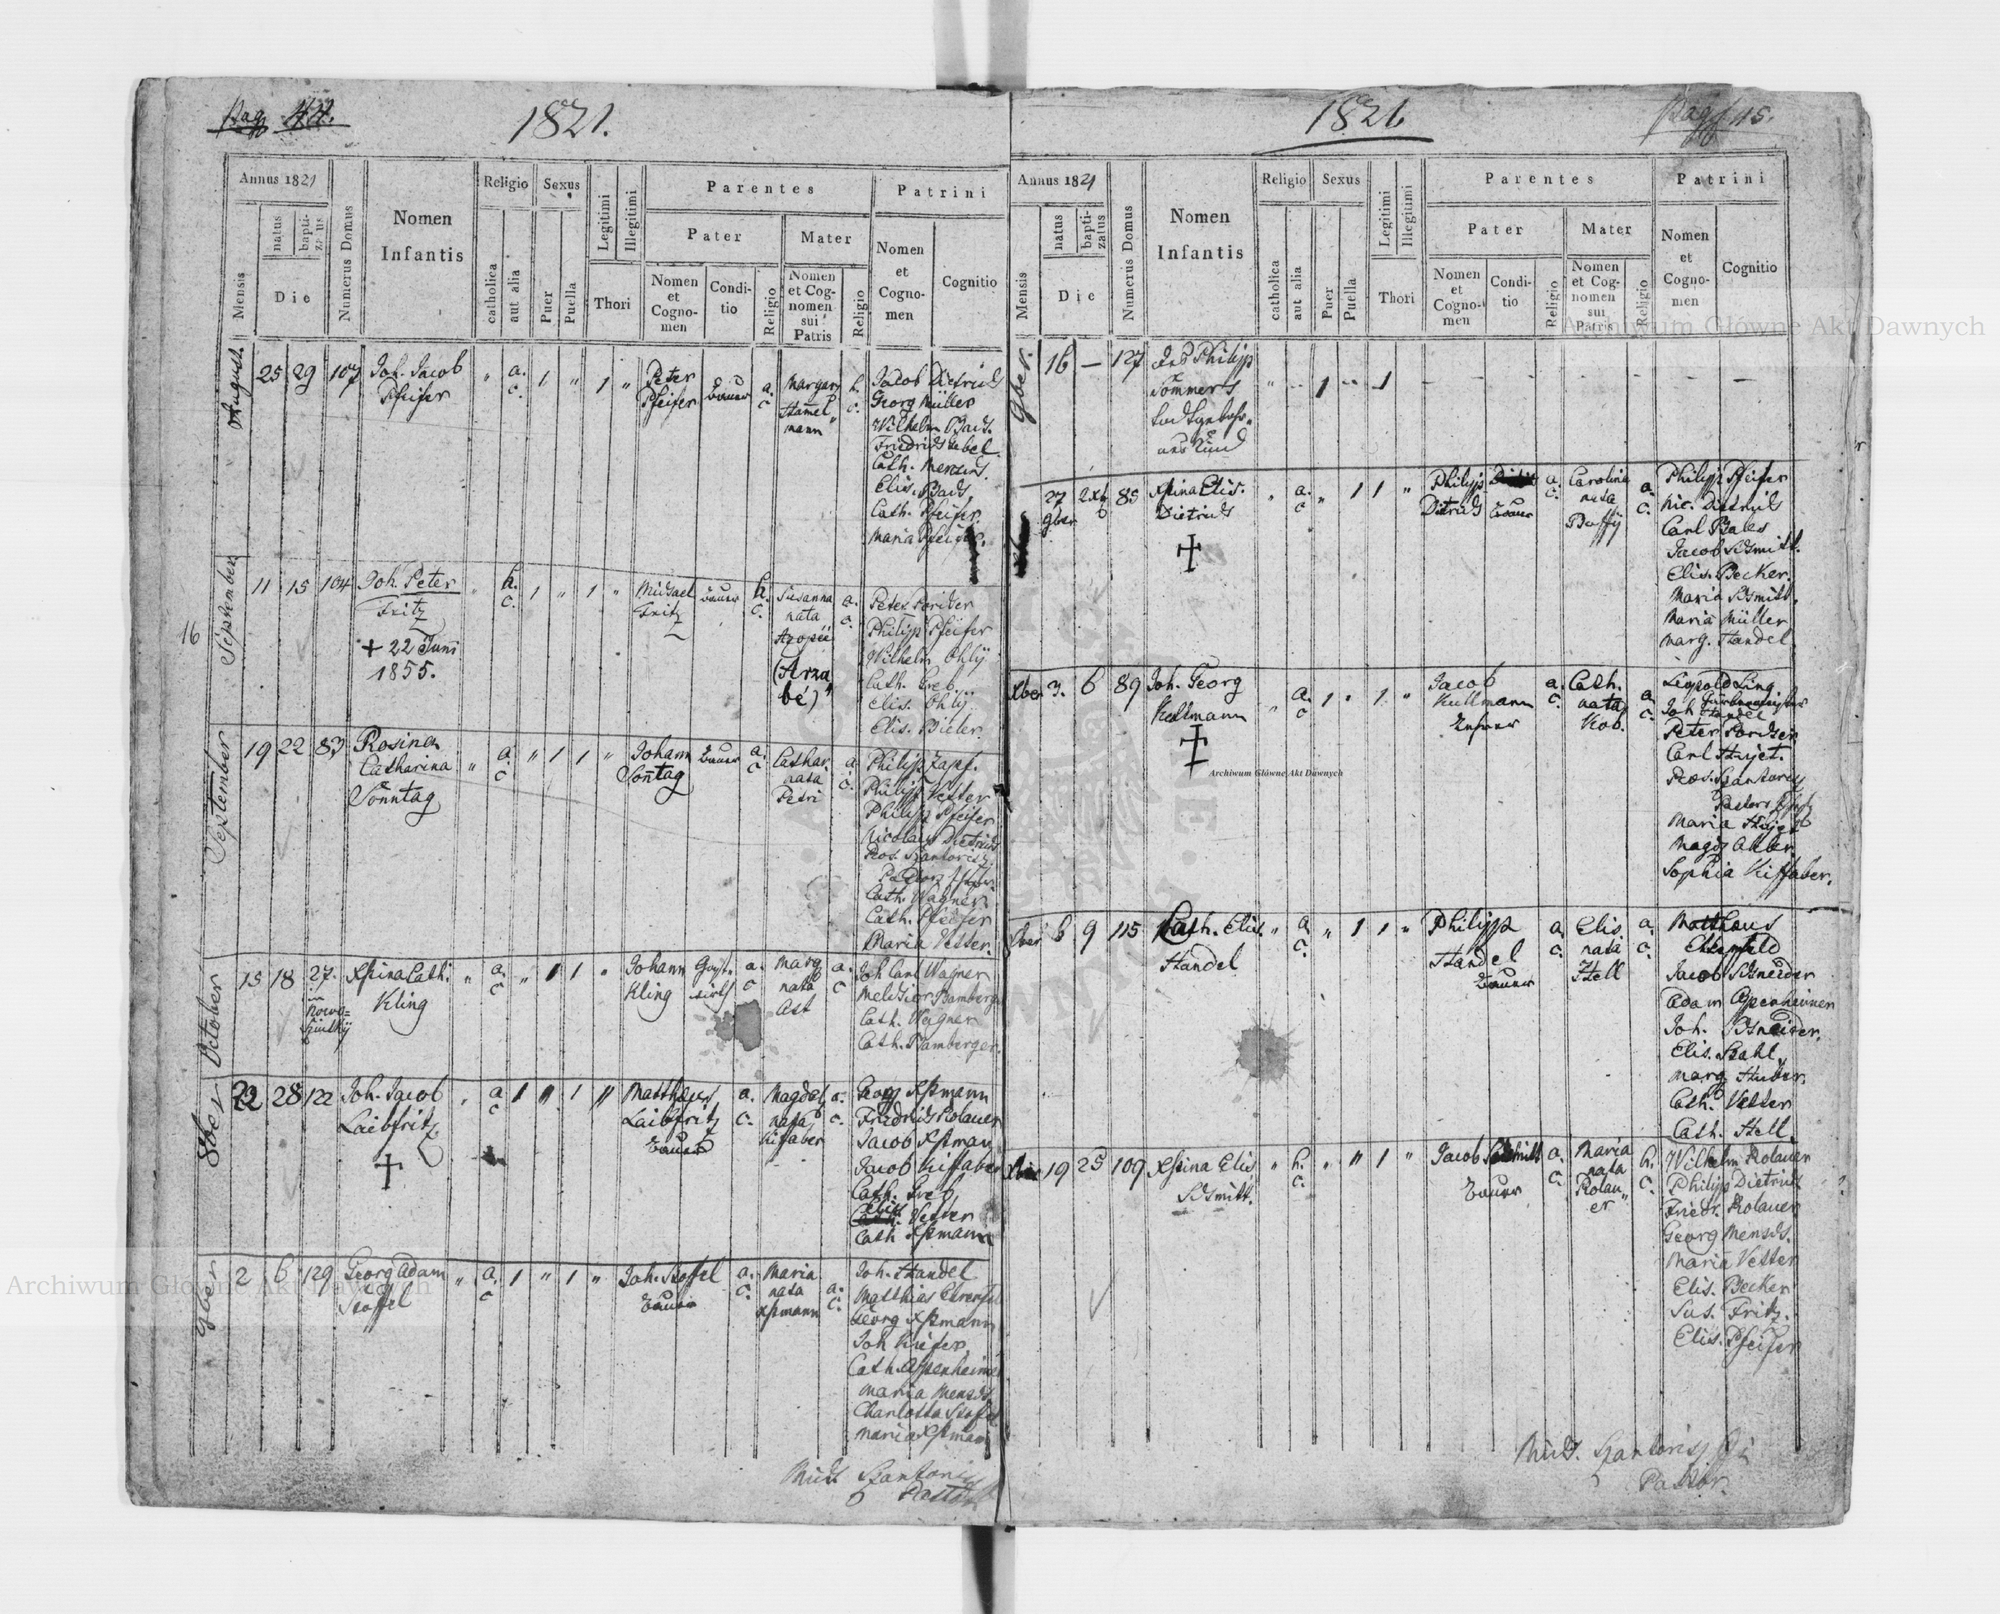 Pag. 44.
1821.
Annus 1821
Mensis
natus
bapti-
zatus
Die
Numerus Domus
Nomen
Infantis
Religio
catholica
aut alia
Sexus
Puer
Puella
Legitimi
Illegitimi
Thori
Parentes
Pater
Nomen
et
Cogno-
men
Condi-
tio
Religio
Mater
Nomen
et Cog-
nomen
sui
Patris
Religio
Patrini
Nomen
et
Cogno-
men
Cognitio
August
25 29 107
Joh. Jacob
Pfeifer
" a.
c.
1 " 1 "
Peter
Pfeifer
Bauer
a.
c
Margar.
Hamel
mann
h.
c.
Jacob Dietrich
Georg Müller
Wilhelm Bads.
Friedrich Gebel
Cath. Mensch.
Elis. Bads.
Cath. Pfeifer.
Maria Pfeifer.
16
September
11 15 104
Joh. Peter
Fritz
+ 22 Juni
1855.
" h.
c.
1 " 1 "
Michael
Fritz
Bauer
h.
c.
Susanna
nata
(Arza
bé)
a.
c.
Peter
Philipp Pfeifer
Wilhelm Ohly
Cath. Greb
Elis. Ohly
Elis. Bieler.
September
19 22 83
Rosina
Catharina
Sonntag
" a.
c
" 1 1 "
Johann
Sonntag
Bauer
a.
c
Cathar.
nata
Petri
a.
c.
Philipp Zapf.
Philipp Vetter
Philipp Pfeifer
Nicolaus Dietrich
Ros. Szantorisz
Cath. Wagner
Cath. Pfeifer
Maria Vetter.
October
15 18 27.
in
Xstina Cath.
Kling
" a.
c
" 1 1 "
Johann
Kling
a.
c
Marg
nata
Ast
a.
c
Joh. Carl Wagner
Melchior Bamberger
Cath. Wagner
Cath. Bamberger.
8ber
22 28 122
Joh. Jacob
Laibfritz
" a
c
1 " 1 "
Matthaeus
Laibfritz
Bauer
a.
c.
Magdal
nata
Kiffaber
a.
c.
Georg Xstmann
Friedrich Rolauer
Jacob Xstman
Jacob Kiffaber
Cath. Greb
Elis.
Vetter
Cath Xstmann
9ber
2 6 129
Georg Adam
Stoffel
" a.
c
1 " 1 "
Joh. Stoffel
Bauer
a.
c.
Maria
nata
Xstmann
a.
c.
Joh. Handel
Matthias Ehrenfeld
Georg Xstmann
Joh Kiefer
Cath. Appenheimer
Maria Mensch
Charlotta Stoffel
Maria Xstmann
Mich. Szantorisz
Pastor
1821
Pag. 45.
Annus 1821
Mensis
natus
bapti-
zatus
Die
Numerus Domus
Nomen
Infantis
Religio
catholica
aut alia
Sexus
Puer
Puella
Legitimi
Illegitimi
Thori
Parentes
Pater
Nomen
et
Cogno-
men
Condi-
tio
Religio
Mater
Nomen
et Cog-
nomen
sui
Patris
Religio
Patrini
Nomen
et
Cogno-
men
Cognitio
9ber.
16 — 127
Des Philipp
Sommers
todtgebohr-
nes Kind
" - 1 " 1
27
9ber
85
Xstina Elis.
Dietrich
" a.
c
" 1 1 "
Philipp
Dietrich
Bauer
a.
c.
Carolina
nata
a.
c.
Philipp Pfeifer
Nic. Dietrich
Carl Bales
Jacob Schmitt.
Elis. Becker.
Maria Schmitt.
Maria Müller
Marg. Handel
Xber 3. 6 89
Joh. Georg
Kullmann
" a.
c
1 " 1 "
Jacob
Kullmann
a.
c.
Cath.
nata
Kob.
a.
c.
Leopold Ling
Joh Handel
Peter
Carl
Ros. Szantorisz
Maria
Magd.
Sophia Kiffaber.
Xber 6 9 115
Cath. Elis.
Handel
" a.
c.
" 1 1 "
Philipp
Handel
Bauer
a.
c.
Elis.
nata
Stell
a.
c.
Matthaeus
Ehrenfeld
Jacob Schneider
Adam Appenheimer
Joh. Schneider.
Elis. Stahl.
Marg. Huber
Cath. Vetter
Cath. Stell.
Xber 19 25 109
Xstina Elis.
Schmitt.
" h.
c.
" " 1 "
Jacob Schmitt
Bauer
a.
c.
Maria
nata
Rolau"
er
h.
c.
Wilhelm Rolauer
Philipp Dietrich
Friedr. Rolauer
Georg Mensch.
Maria Vetter
Elis. Becker
Sus. Fritz.
Elis. Pfeifer
Mich. Szantorisz
Pastor.
Archiwum Główne Akt Dawnych
Archiwum Główne Akt Dawnych
Archiwum Główne Akt Dawnych